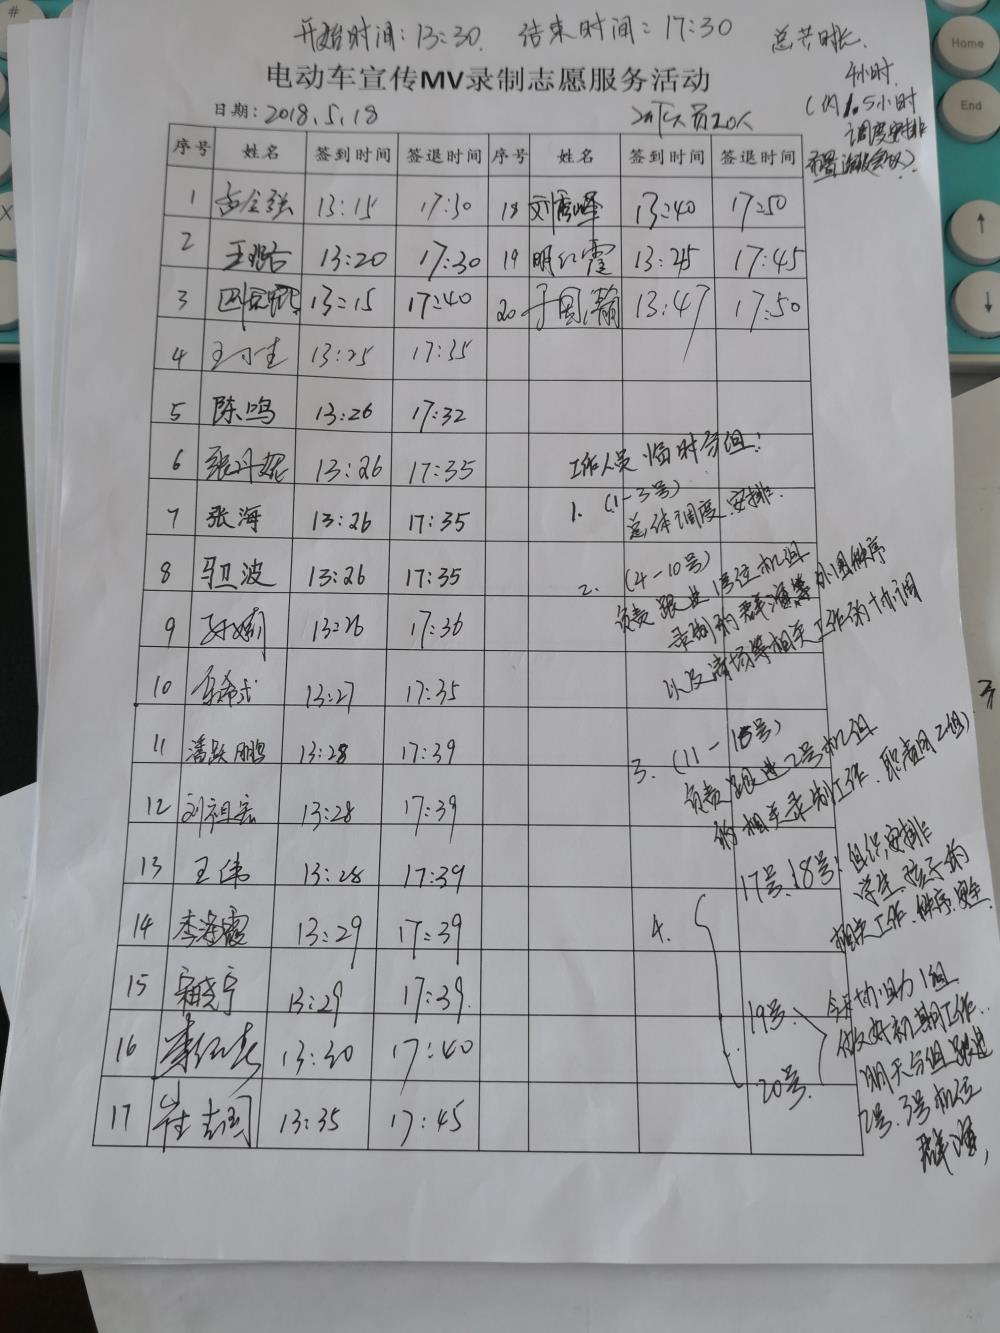 开始时间：13:30. 结束时间：17:30
总共时长.
4小时.
电动车宣传MV录制志愿服务活动
日期：2018.5.18
工作人员20人
序号 姓名 签到时间 签退时间 序号 姓名 签到时间 签退时间
1 13:15 17:30 18 刘秀峰 13:40 17:50
2 13:20 17:30 19 明红霞 13:25 17:45
3 13:15 17:40 20 于国瀚 13:47 17:50
4 13:25 17:35
5 陈鸣 13:26 17:32
6 13:26 17:35
7 张海 13:26 17:35
8 马卫波 13:26 17:35
9 13:26 17:36
10 13:27 17:35
11 潘跃鹏 13:28 17:39
12 刘祖宏 13:28 17:39
13 王伟 13:28 17:39
14 李海霞 13:29 17:39
15 宋晓宁 13:29 17:39.
16 13:30 17:40
17 崔志国 13:35 17:45
工作人员临时分组：
1. (1-3号)
总体调度、安排.
2. (4-10号)
负责跟进1号位机组
录制的群演等外围秩序
以及商场等相关工作的协调
3. (11-16号)
负责跟进2号机组
的相关录制工作.职责同2组)
4.
17号、18号：组织安排
学生、孩子的
相关工作、秩序、安全
19号.
20号.
今天协助1组
做好初期工作..
明天分组跟进
2号、3号机位
群演,